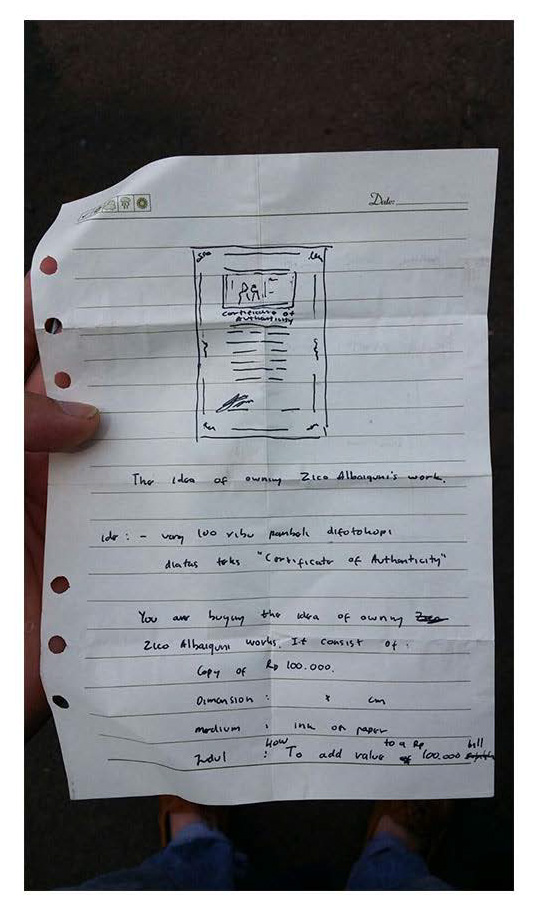 Date:
Certificate of
Authenticity
The idea of owning Zico Albaiquni's work.
ide : - uang 100 ribu pembeli difotokopi
diatas teks "Certificate of Authenticity"
You are buying the idea of owning
Zico Albaiquni works. It consist of :
Copy of Rp 100.000.
Dimension : x cm
medium : ink on paper
Judul : How To add value to a Rp 100.000 bill